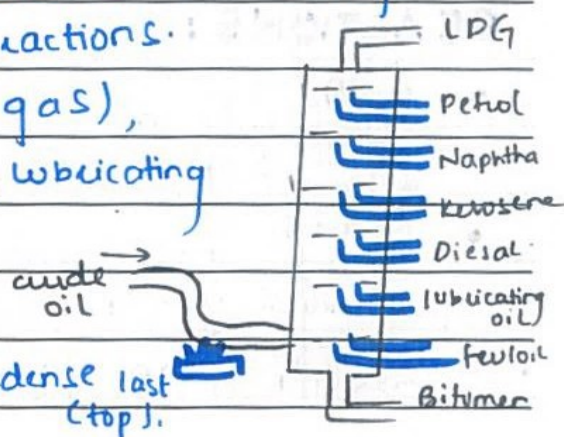 ractions.
gas),
lubricating
dense last
(top).
crude
oil
LDG
Petrol
Naphtha
kerosene
Diesal
lubricating
oil
Feuloil
Bitumen